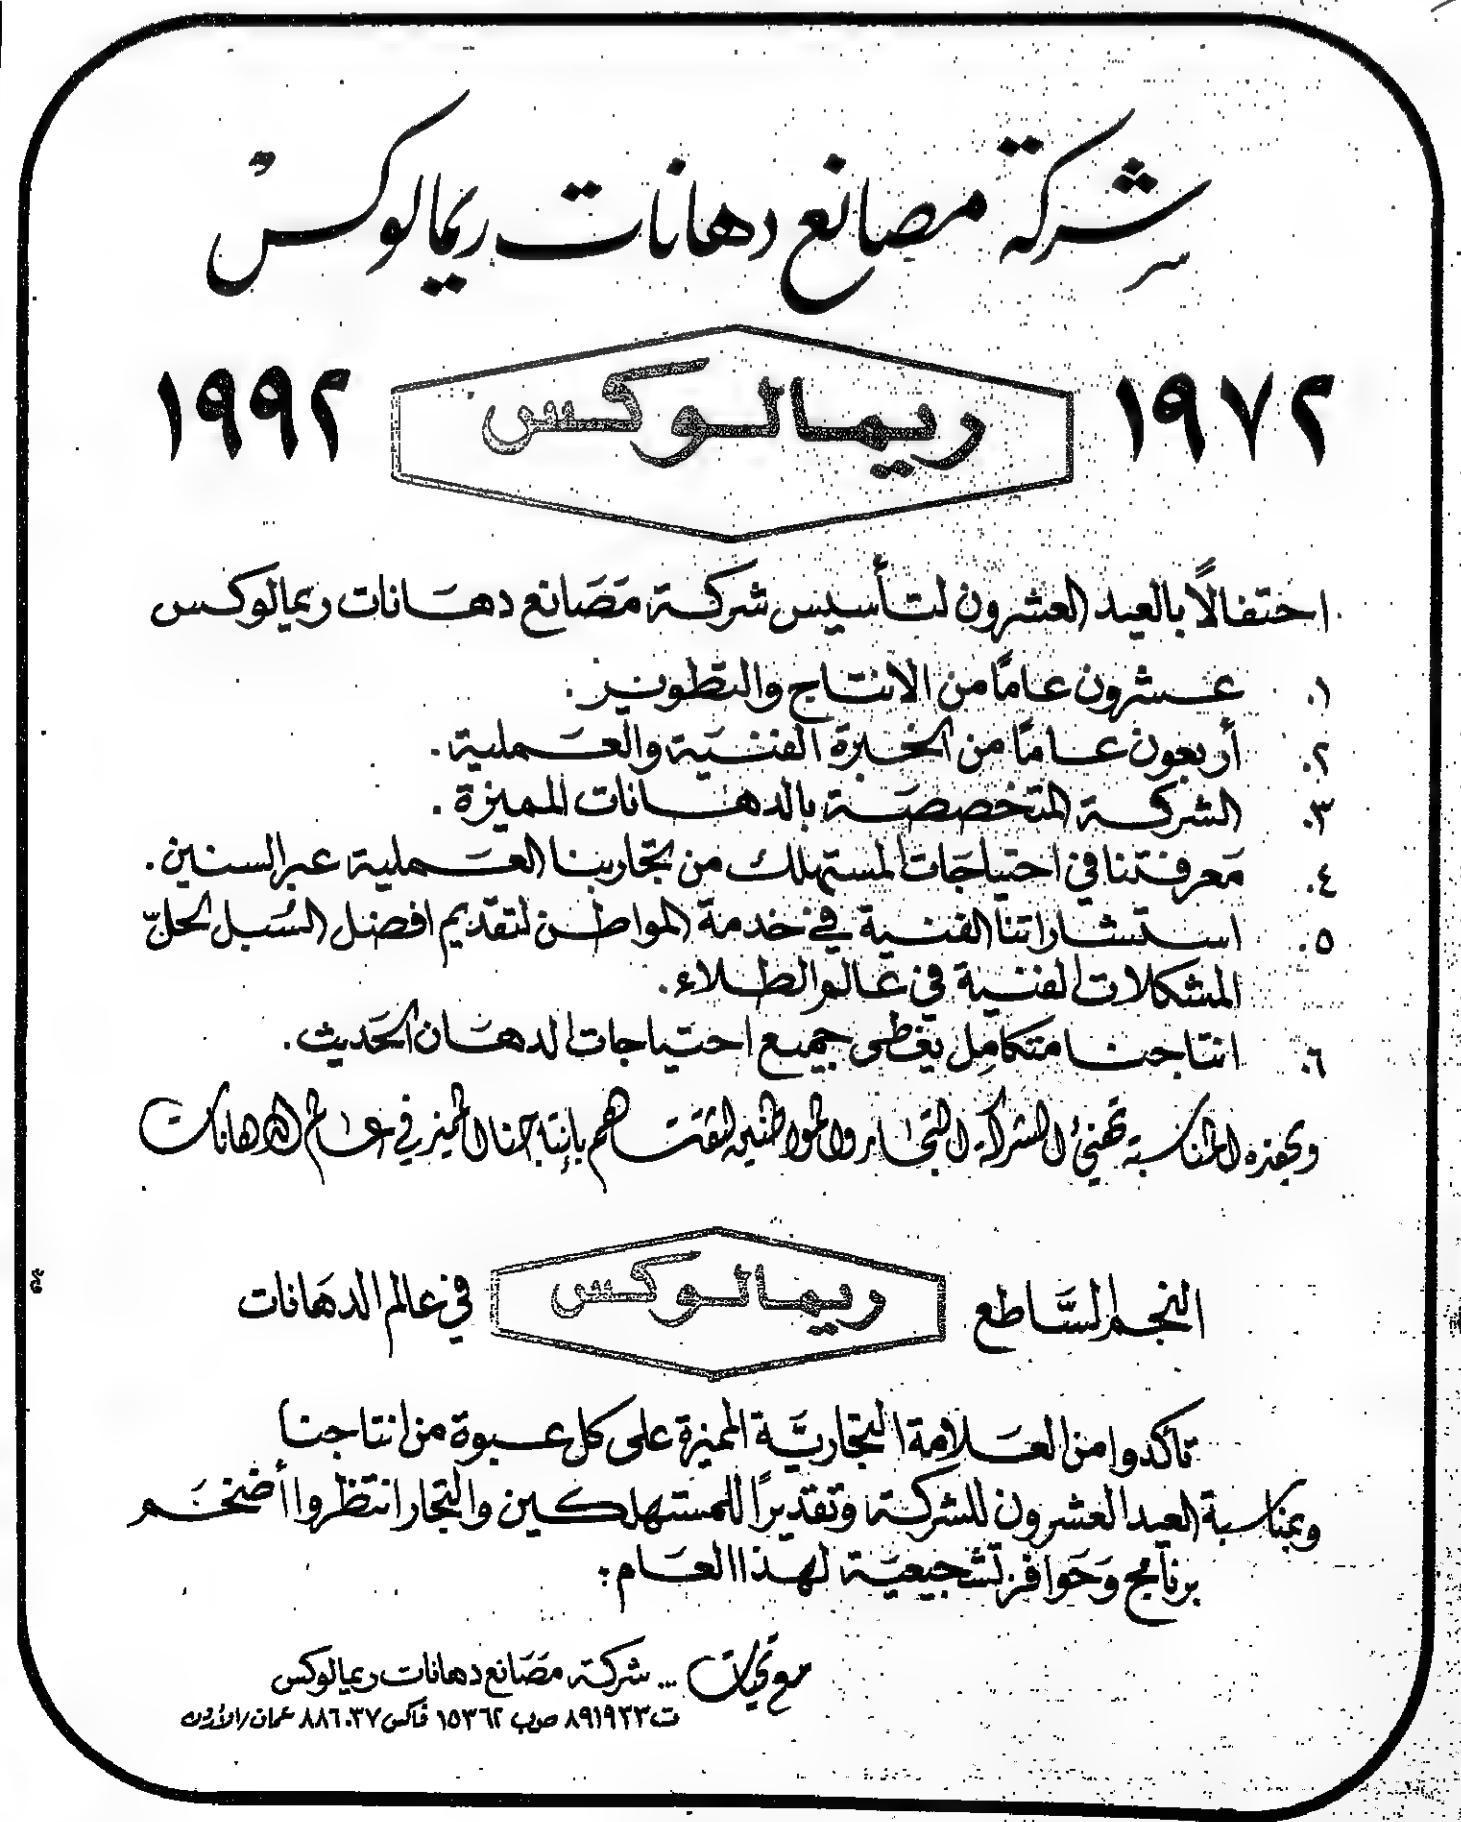 شركة مصانع دهانات ريمالوكس
١٩٧٢ ريمالوكس ١٩٩٢
احتفالاً بالعيد العشرون لتأسيس شركة مَصَانع دهَانات ريمالوكس
١. عشرون عامًا من الانتاج والتطوير.
٢. أربعون عامًا من الخبرة الفنيَة والعَملية.
٣. الشركة المتخصصَة بالدهَانات المميزة.
٤. مَعرفتنا في احتياجَات المستهلك من تجاربنا العَملية عبر السنين.
٥. استشاراتنا الفنية في خدمة المواطن لتقديم افضل السُبل لحلّ
المشكلات الفنية في عَالم الطلاء.
٦. انتاجنا متكامِل يغطي جميع احتياجات الدهَان الحَديث.
وبهذه المناسبة تهنئ الشركة التجار والمواطنين لثقتهم بإنتاجنا المميز في عالم الدهانات
النجم السَّاطع ريمالوكس في عالم الدهَانات
تأكدوا من العَلامة التجاريَّة المميزة على كل عبوة من انتاجنا
وبمناسبة العيد العشرون للشركة وتقديرًا للمستهلكين والتجار انتظروا أضخَم
برنامج وَحَوافز تشجيعيَة لهذا العَام:
مع تحيات ... شركة مَصَانع دهانات ريمالوكس
ت ٨٩١٩٣٣ ص.ب ١٥٣٦٢ فاكس ٨٨٦٠٣٧ عمان/الأردن